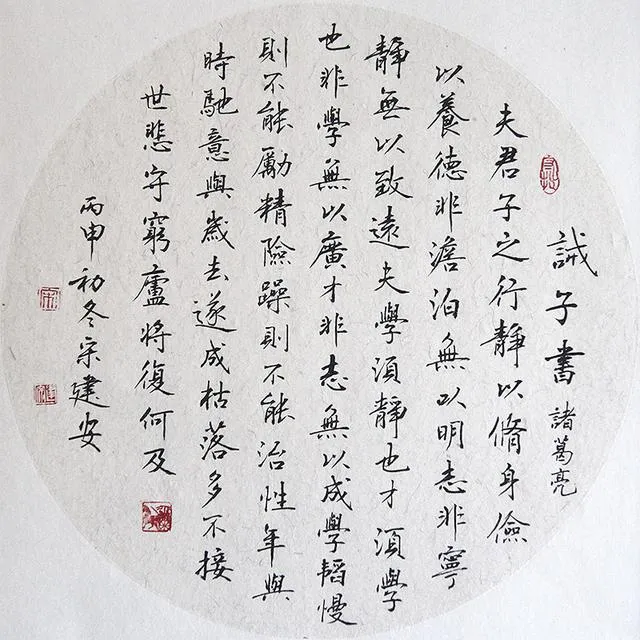 誡子書 諸葛亮
夫君子之行靜以脩身儉
以養德非澹泊無以明志非寧
靜無以致遠夫學須靜也才須學
也非學無以廣才非志無以成學韬慢
則不能勵精險躁則不能治性年與
時馳意與歲去遂成枯落多不接
世悲守窮廬將復何及
丙申初冬宗建安